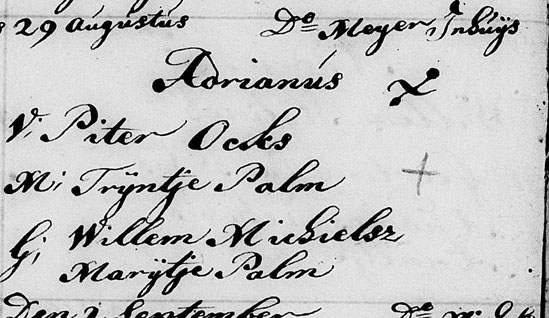 29 Augustus Do Meyer, Inhuys
Adrianus
V; Piter Ocks
M; Tryntje Palm
G; Willem Michielsz
Marytje Palm
Den 1 September Do